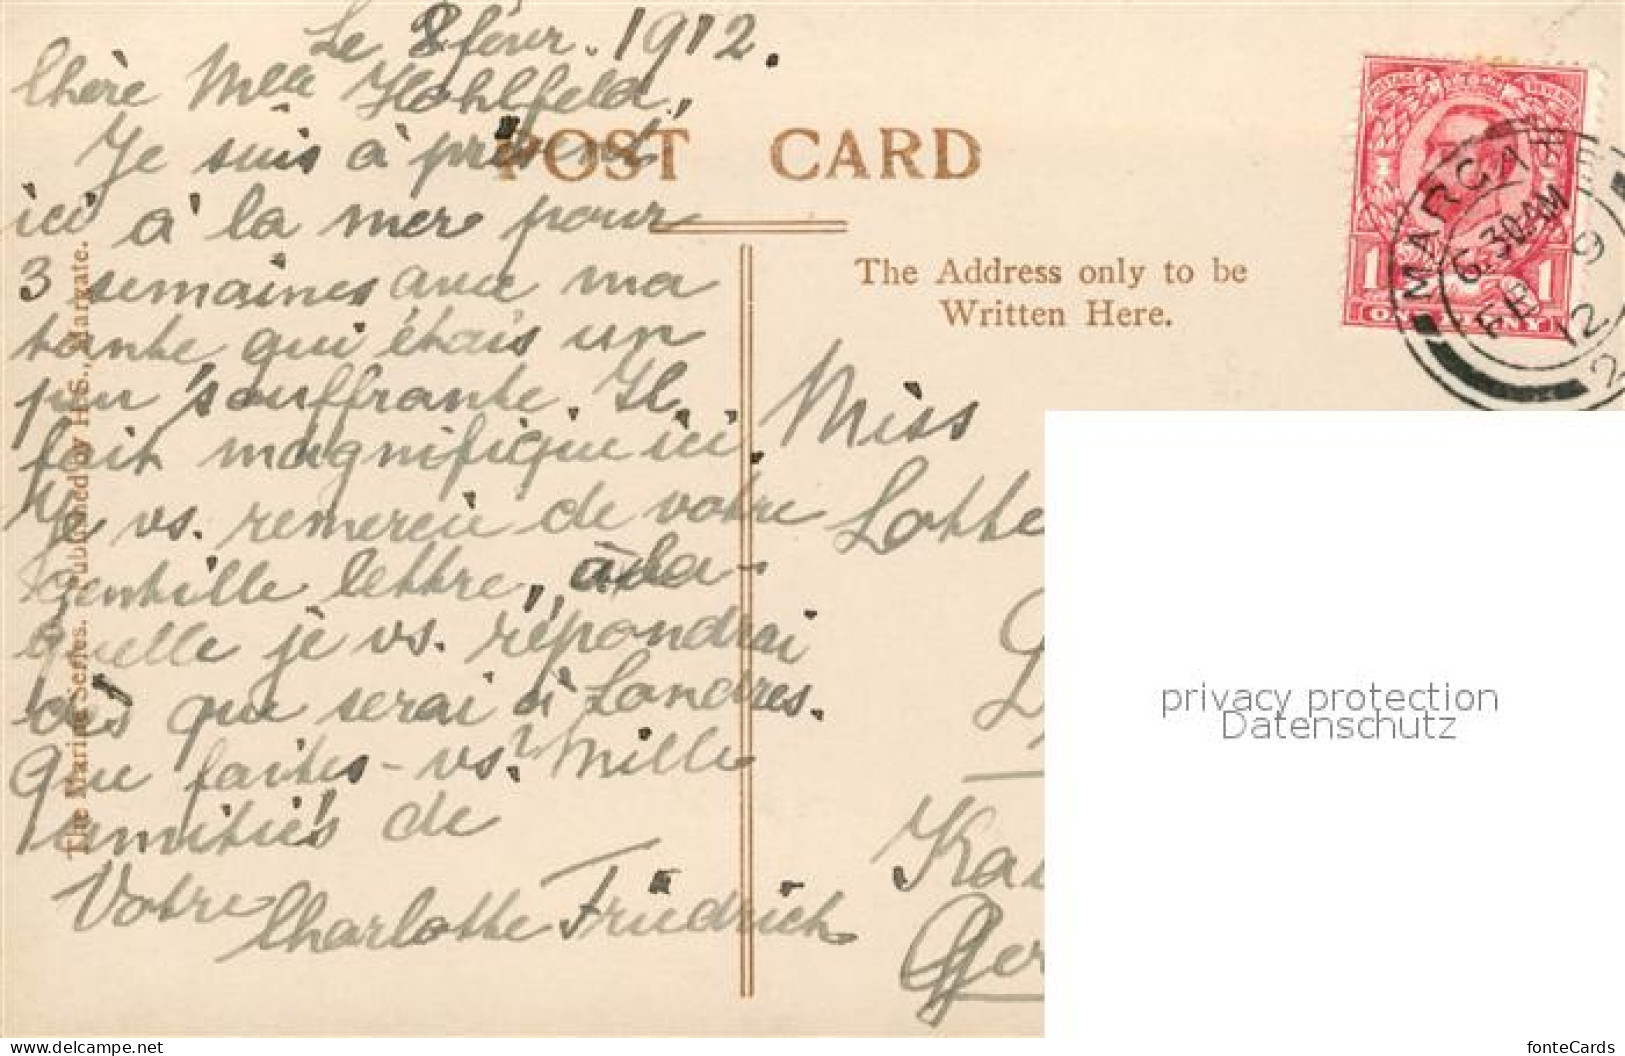 Le 8 févr. 1912.
Chère Mlle Hohlfeld,
Je suis à présent
ici à la mer pour
3 semaines avec ma
tante qui étais un
peu souffrante. Il
fait magnifique ici.
Je vs. remercie de votre
gentille lettre, à la-
quelle je vs. répondrai
dès que serai à Londres.
Que faites-vs? Mille
amitiés de
Votre Charlotte Friedrich
POST CARD
The Address only to be
Written Here.
The Marine Series. Published by H.S., Margate.
POSTAGE REVENUE
1 1
ONE PENNY
MARGATE
6.30AM
FEB 9
12
2
Miss
Lotte
Ger
privacy protection
Datenschutz
www.delcampe.net
fonteCards